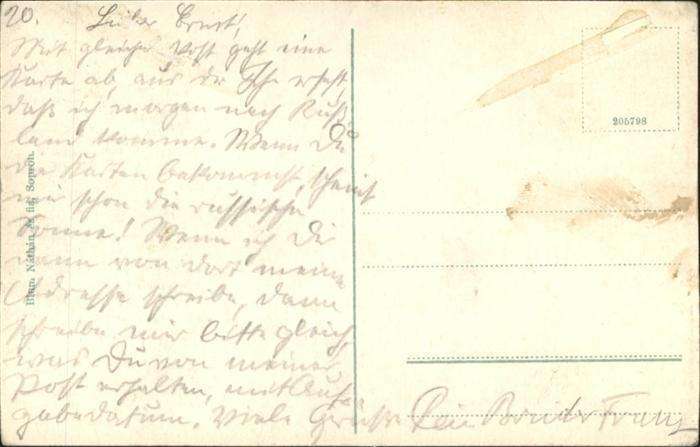 20. Lieber Ernst!
Mit gleicher Post geht eine
Karte ab, aus der Ihr erseht,
daß ich morgen nach Ruß-
land komme. Wenn Du
die Karten bekommst, scheint
mir schon die russische
Sonne! Wenn ich Dir
dann von dort meine
Adresse schreibe, dann
schreibe mir bitte gleich,
was Du von meiner
Post erhalten, mit Auf-
gabedatum. Viele Grüße Dein Bruder Franz
Blum Náthán és fia, Sopron.
205798